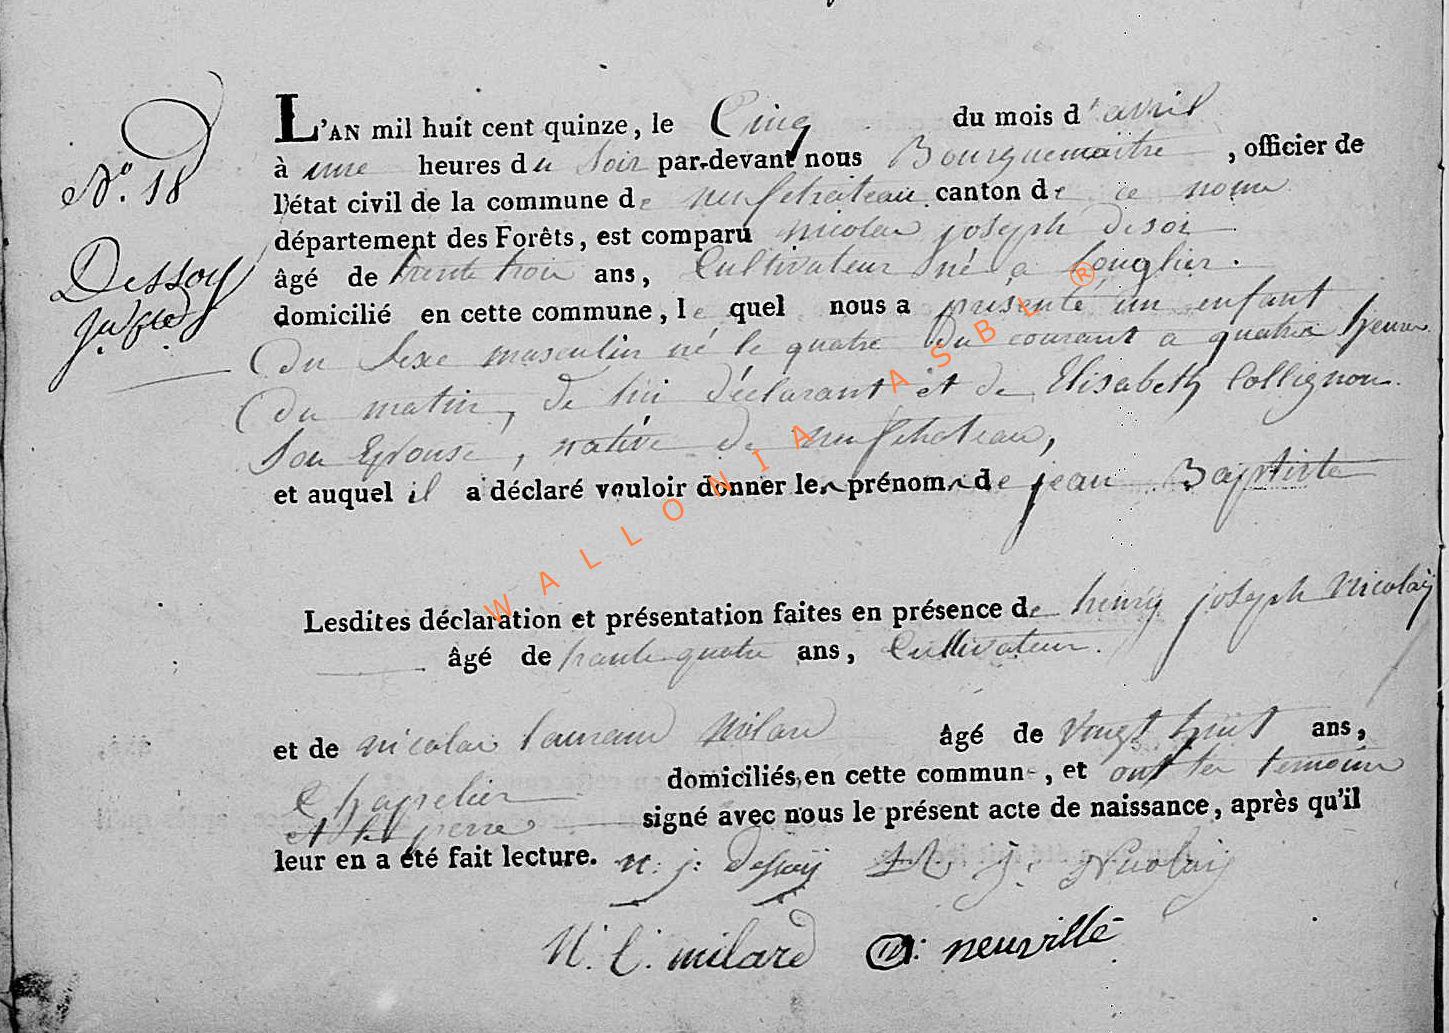 N.° 18
Dessoy
L'AN mil huit cent quinze, le Cinq du mois d'avril
à une heures du soir par-devant nous Bourguemaitre, officier de
l'état civil de la commune de neufchateau canton de ce nom
département des Forêts, est comparu nicolas joseph desoi
âgé de trente trois ans, Cultivateur né a Longlier.
domicilié en cette commune, le quel nous a présenté un enfant
du Sexe masculin né le quatre du courant a quatre heures
du matin, de lui déclarant et de Elisabeth Collignon
Son Epouse, native de neufchateau,
et auquel il a déclaré vouloir donner les prénoms de jean Baptiste
Lesdites déclaration et présentation faites en présence de henry joseph Nicolaÿ
âgé de trente-quatre ans, Cultivateur.
et de nicolas Milard âgé de Vingt huit ans,
Chapelier domiciliés en cette commune, et ont les temoins
et le pere signé avec nous le présent acte de naissance, après qu'il
leur en a été fait lecture. n: j: Dessoÿ H. j: Nicolaÿ
N. L. milard neuville
WALLONIA ASBL ®